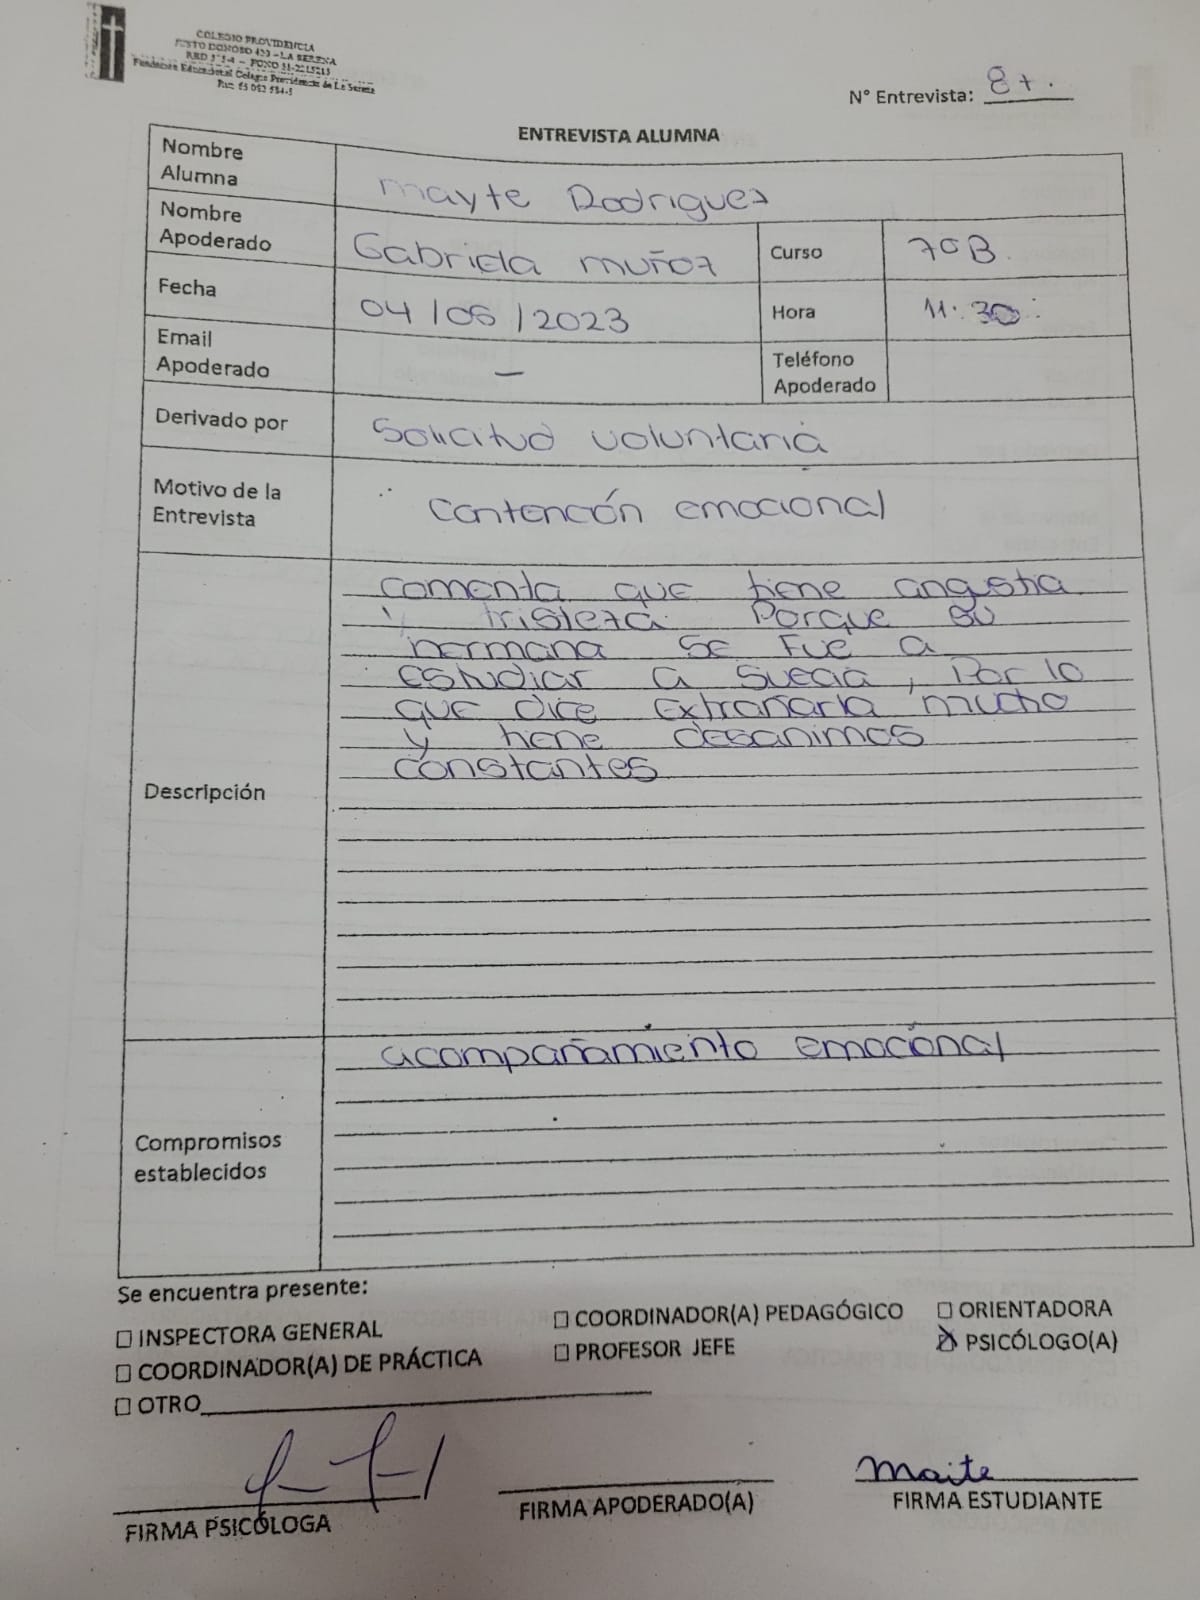 COLEGIO PROVIDENCIA
JUSTO DONOSO 420 - LA SERENA
Fundación Educacional Colegio Providencia de La Serena
N° Entrevista: 87.
ENTREVISTA ALUMNA
Nombre Alumna
mayte Rodriguez
Nombre Apoderado
Gabriela muñoz
Curso
7°B
Fecha
04/05/2023
Hora
11:30
Email Apoderado
-
Teléfono Apoderado
Derivado por
Solicitud voluntaria
Motivo de la Entrevista
contención emocional
Descripción
comenta que tiene angustia
y tristeza porque su
hermana se fue a
estudiar a suecia, por lo
que dice extrañarla mucho
y tiene desanimos
constantes
Compromisos establecidos
acompañamiento emocional
Se encuentra presente:
☐ INSPECTORA GENERAL
☐ COORDINADOR(A) PEDAGÓGICO
☐ ORIENTADORA
☐ COORDINADOR(A) DE PRÁCTICA
☐ PROFESOR JEFE
☒ PSICÓLOGO(A)
☐ OTRO
Maite
FIRMA PSICÓLOGA
FIRMA APODERADO(A)
FIRMA ESTUDIANTE